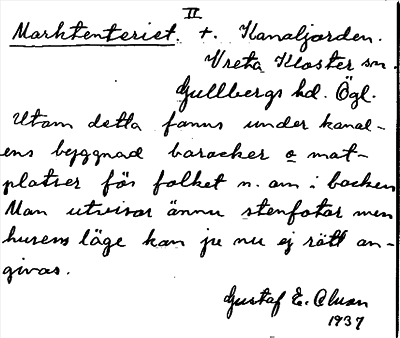 II
Marktenteriet. t. Kanaljorden.
Vreta Kloster sn.
Gullbergs hd. Ögl.
Utom detta fanns under kanal-
ens byggnad baracker o mat-
platser för folket n. om i backen
Man utvisar ännu stenfotar men
husens läge kan ju nu ej rätt an-
givas.
Gustaf E. Olson
1937